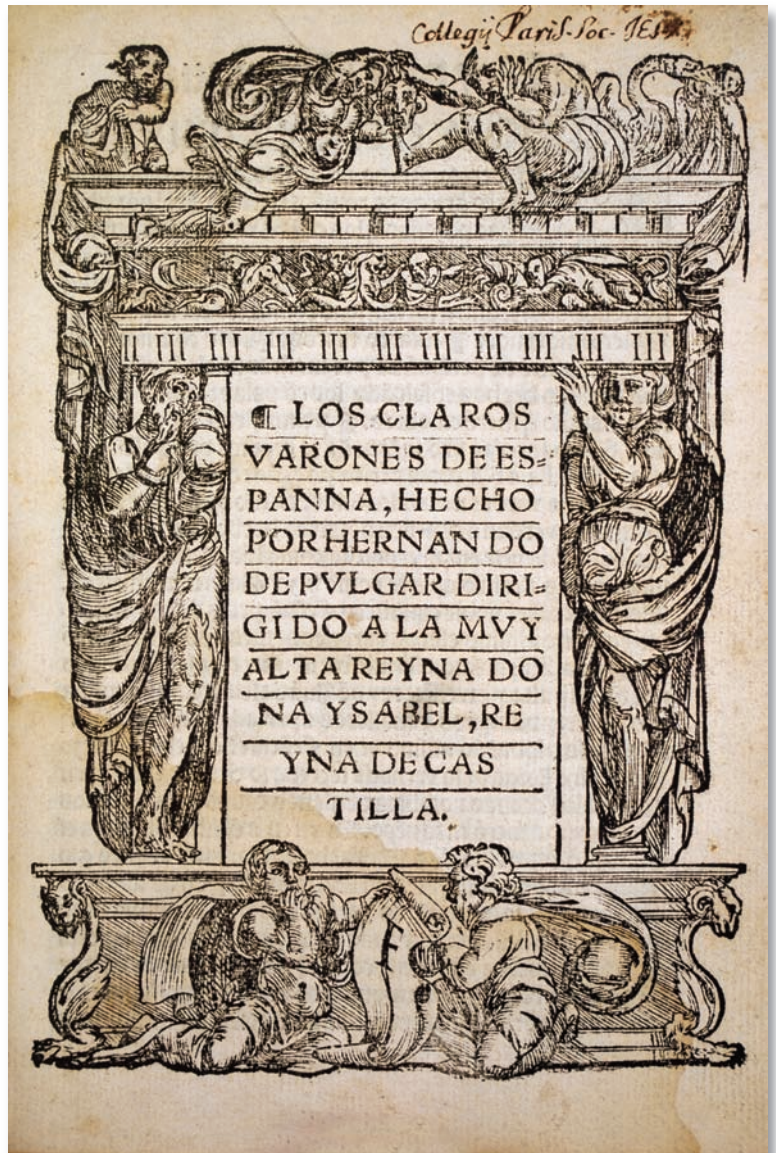 Collegij Paris. Soc. JESu
¶ LOS CLAROS
VARONES DE ES=
PANNA, HECHO
POR HERNANDO
DE PVLGAR DIRI=
GIDO A LA MVY
ALTA REYNA DO
NA YSABEL, RE
YNA DE CAS
TILLA.